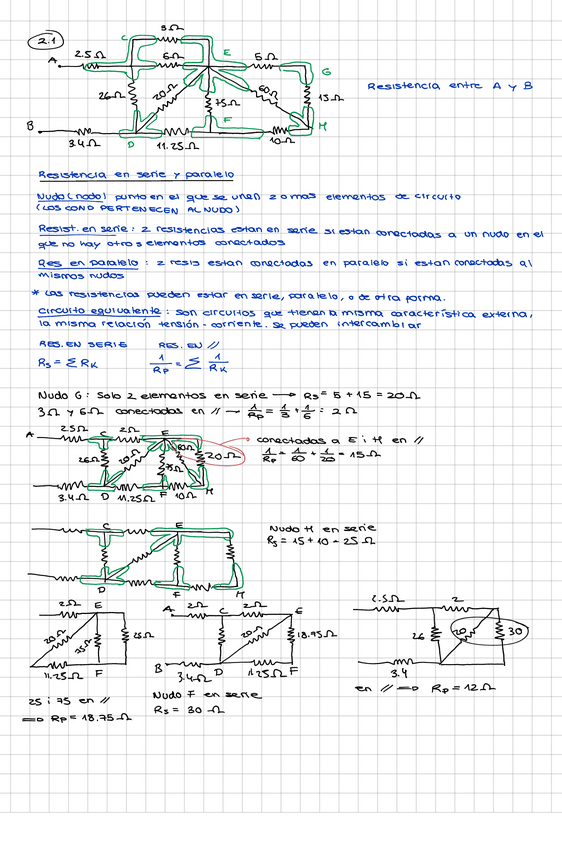 2.1
3Ω
C
E
2.5Ω
6Ω
5Ω
A
G
26Ω
20Ω
60Ω
75Ω
15Ω
Resistencia entre A y B
B
F
H
D
3.4Ω
11.25Ω
10Ω
Resistencia en serie y paralelo
Nudo (nodo) punto en el que se unen 2 o mas elementos de circuito
(LOS COND PERTENECEN AL NUDO)
Resist. en serie: 2 resistencias estan en serie si estan conectadas a un nudo en el
que no hay otros elementos conectados
Res en paralelo: 2 resis estan conectadas en paralelo si estan conectadas al
mismos nudos
* Las resistencias pueden estar en serie, paralelo, o de otra forma.
Circuito equivalente: son circuitos que tienen la misma característica externa,
la misma relación tensión-corriente. Se pueden intercambiar
RES. EN SERIE RES. EN //
Rs = ΣRk 1/Rp = Σ 1/Rk
Nudo G: Solo 2 elementos en serie → Rs = 5 + 15 = 20Ω
3Ω y 6Ω conectadas en // → 1/Rp = 1/3 + 1/6 = 2Ω
A 2.5Ω C 2Ω E
conectadas a E i H en //
26Ω 20Ω 60Ω 75Ω 20Ω
1/Rp = 1/60 + 1/20 = 15Ω
3.4Ω D 11.25Ω F 10Ω H
C E
Nudo H en serie
Rs = 15 + 10 = 25Ω
D F H
2Ω E
20Ω 75Ω 25Ω
11.25Ω F
A 2Ω C 2Ω E
20Ω 18.75Ω
B 3.4Ω D 11.25Ω F
2.5Ω 2
26 20 30
3.4
25 i 75 en //
⇒ Rp = 18.75Ω
Nudo F en serie
Rs = 30Ω
en // ⇒ Rp = 12Ω